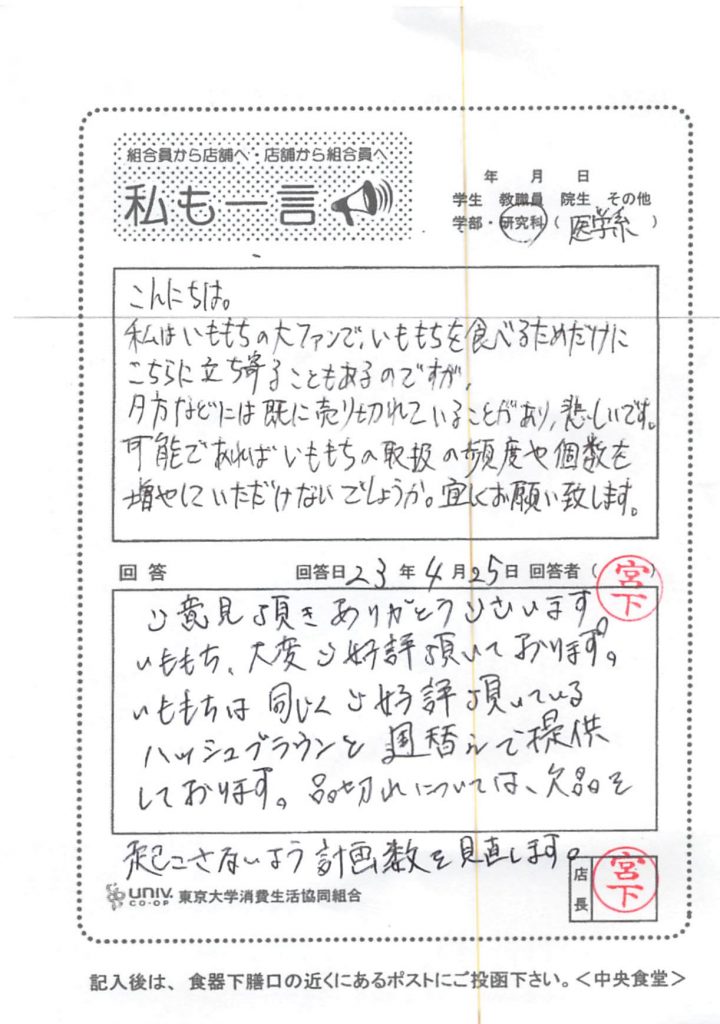 組合員から店舗へ・店舗から組合員へ
私も一言
年 月 日
学生 教職員 院生 その他
学部・研究科（医学系）
こんにちは。
私はいももちの大ファンで、いももちを食べるためだけに
こちらに立ち寄ることもあるのですが、
夕方などには既に売り切れていることがあり、悲しいです。
可能であればいももちの取扱の頻度や個数を
増やしていただけないでしょうか。宜しくお願い致します。
回答 回答日 23 年 4 月 25 日 回答者（宮下）
ご意見頂きありがとうございます。
いももち、大変ご好評頂いております。
いももちは同じくご好評頂いている
ハッシュブラウンと週替りで提供
しております。品切れについては、欠品を
起こさないよう計画数を見直します。
店長 宮下
UNIV. CO-OP 東京大学消費生活協同組合
記入後は、食器下膳口の近くにあるポストにご投函下さい。＜中央食堂＞